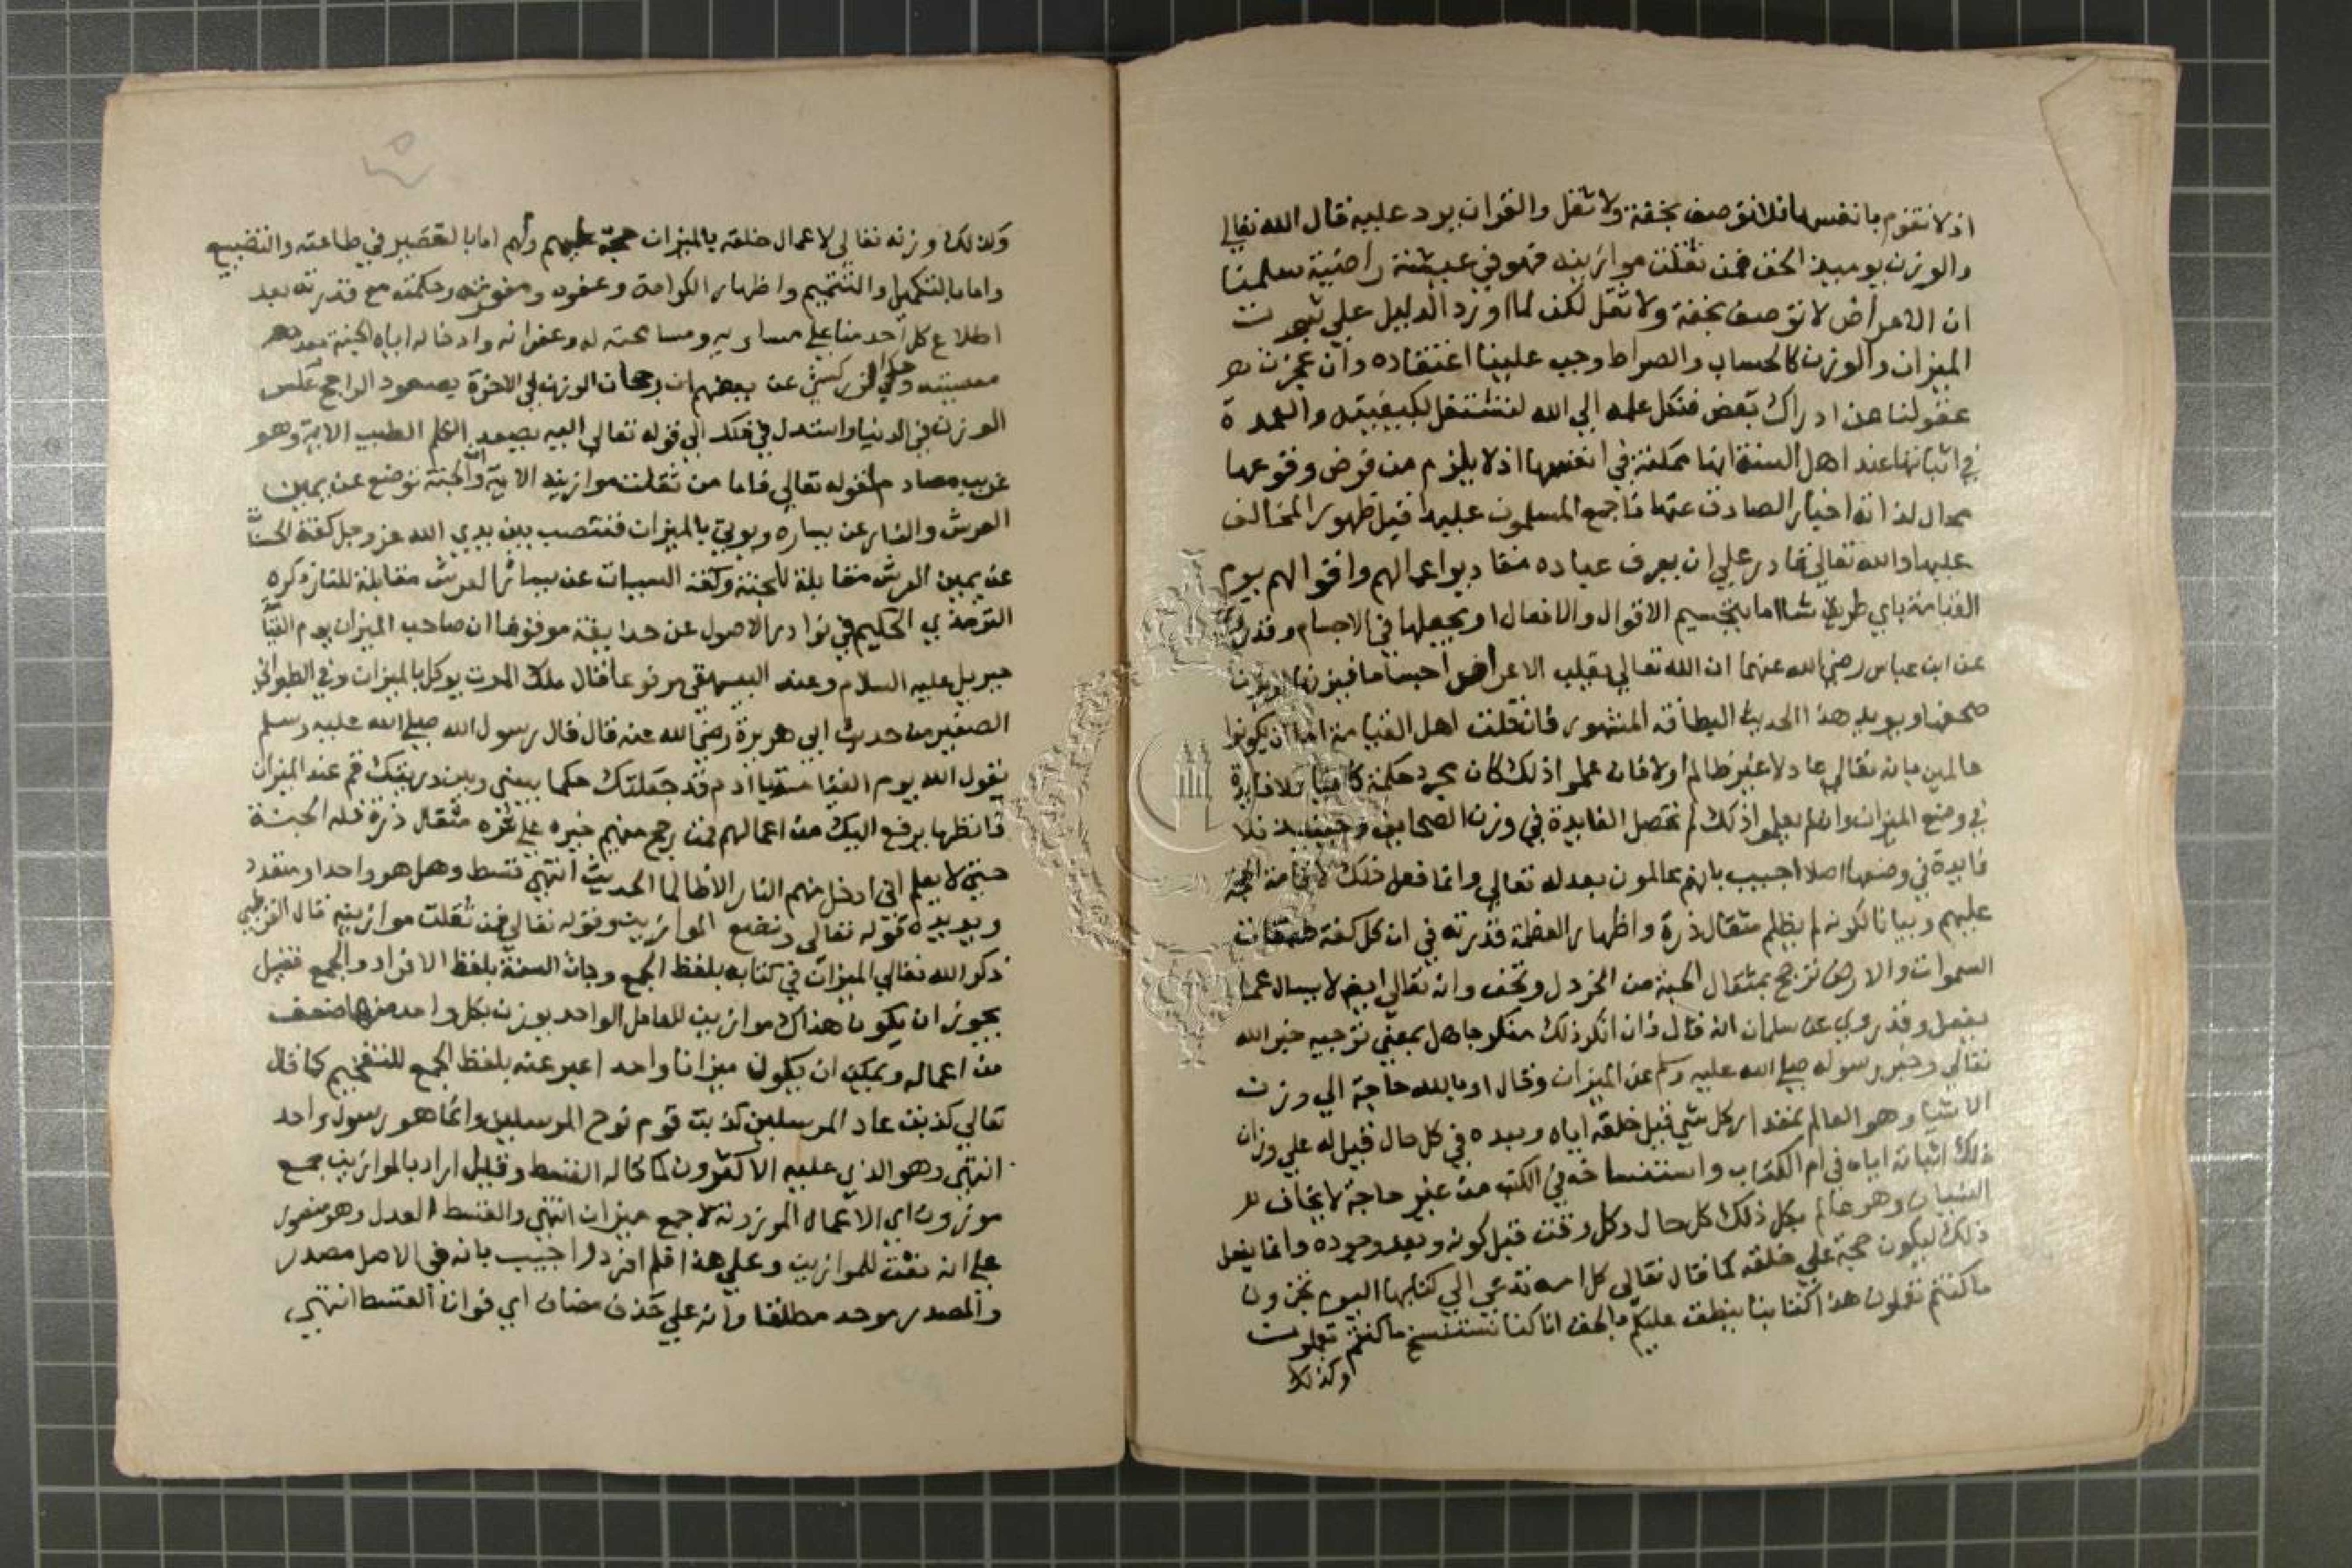 اذ لا تقوم بانفسها فلا توصف بخفة ولا ثقل والقران يرد عليه قال الله تعالى
والوزن يوميذ الحق فمن ثقلت موازينه فهو في عيشة راضية سلمنا
ان الاعراض لا توصف بخفة ولا ثقل لكن لما ورد الدليل علي ثبوت
الميزان والوزن كالحساب والصراط وجب علينا اعتقاده وان عجزت
عقولنا عن ادراك بعض فنكل علمه الي الله لنشتغل بكيفيته والعمدة
في اثباتها عند اهل السنة انها ممكنة في انفسها اذ لا يلزم من فرض وقوعها
محال لذاته اخبار الصادق عنها فاجمع المسلمون عليها قبل ظهور المخالف
عليها والله تعالي قادر علي ان يعرف عباده مقادير اعمالهم واقوالهم يوم
القيامة باي طريق شا اما بتجسيم الاقوال والافعال او يجعلها في الاجسام وقد روي
عن ابن عباس رضي الله عنهما ان الله تعالي يقلب الاعراض اجساما فيزنها
صحفها ويويد هذا الحديث البطاقة المشهور فان قلت اهل القيامة اما ان يكونوا
عالمين بانه تعالي عادلا غير ظالم او لا فان علموا ذلك كان مجرد حكمه كافيا فلا فايدة
في وضع الميزان وان لم يعلموا ذلك لم تحصل الفايدة في وزن الصحايف وحينيذ فلا
فايدة في وضعها اصلا اجيب بانهم عالمون بعدله تعالي وانما فعل ذلك لاقامة الحجة
عليهم وبيانا لكونه لم يظلم مثقال ذرة واظهار العظمة قدرته في ان كل كفة طبقات
السموات والارض ترجح بمثقال الحبة من الخردل وتخف وانه تعالي ايضا لا يسال عما
يفعل وقد روي عن سلمان انه قال فان انكر ذلك منكر جاهل بمعني توجيه خبر الله
تعالي وخبر رسوله صلي الله عليه وسلم عن الميزان وقال او بالله حاجة الي وزن
الاشيا وهو العالم بمقدار كل شي قبل خلقه اياه وبعده في كل حال قيل له علي وزان
ذلك اثباته اياه في ام الكتاب واستنساخه في الكتب من غير حاجة لا يخاف
النسيان وهو عالم بكل ذلك كل حال وكل وقت قبل كونه وبعد وجوده وانما يفعل
ذلك ليكون حجة علي خلقه كما قال تعالي كل امه تدعي الي كتابها اليوم تجزون
ما كنتم تعملون هذا كتابنا ينطق عليكم بالحق انا كنا نستنسخ ما كنتم تعملون
وكذلك
وكذلك وزنه تعالي لاعمال خلقه بالميزان حجة عليهم ولهم اما بالتقصير في طاعته والتضييع
واما بالتكميل والتتميم واظهار الكرامة وعفوه ومغفرته وحكمته مع قدرته بعد
اطلاع كل احد منا علي مساويه ومسامحته له وغفرانه وادخاله اياه الجنة بعد
معصيته وحكي الزركشي عن بعضهم ان رجحان الوزن في الاخرة بصعود الراجح عكس
الوزن في الدنيا واستدل في ذلك الي قوله تعالى اليه يصعد الكلم الطيب الاية وهو
غريب مصادم لقوله تعالي فاما من ثقلت موازينه الاية والجنة توضع عن يمين
العرش والنار عن يساره ويوتي بالميزان فتنصب بين يدي الله عز وجل كفة الحسنات
عن يمين العرش مقابلة للجنة وكفة السييات عن يسار العرش مقابلة للنار ذكره
الترمذي الحكيم في نوادر الاصول عن حذيفة موقوفا ان صاحب الميزان يوم القيامة
جبريل عليه السلام وعند البيهقي مرفوعا قال ملك الموت يوكل بالميزان وفي الطبراني
الصغير من حديث ابي هريرة رضي الله عنه قال قال رسول الله صلي الله عليه وسلم
يقول الله يوم القيامة يا ادم قد جعلتك حكما بيني وبين ذريتك قم عند الميزان
فانظر ما يرفع اليك من اعمالهم فمن رجح منهم خيره علي شره مثقال ذرة فله الجنة
حتي لا يعلم اني ادخل منهم النار الا ظالما الحديث انتهي قسط وهل هو واحد او متعدد
ويويده قوله تعالى ونضع الموازين وقوله تعالي فمن ثقلت موازينه قال القرطبي
ذكر الله تعالي الميزان في كتابه بلفظ الجمع وجات السنة بلفظ الافراد والجمع فقيل
يجوز ان يكون هناك موازين للعامل الواحد يوزن بكل واحد منها صنف
من اعماله ويمكن ان يكون ميزانا واحدا عبر عنه بلفظ الجمع للتفخيم كما قال
تعالي كذبت عاد المرسلين كذبت قوم نوح المرسلين وانما هو رسول واحد
انتهي وهو الذي عليه الاكثرون كما قاله القسط وقيل اراد بالموازين جمع
موزون اي الاعمال الموزونة لا جمع ميزان انتهي والقسط العدل وهو منصوب
علي انه نعت للموازين وعلي هذا فلم افرد واجيب بانه في الاصل مصدر
والمصدر موحد مطلقا وانه علي حذف مضاف اي ذوات القسط انتهي